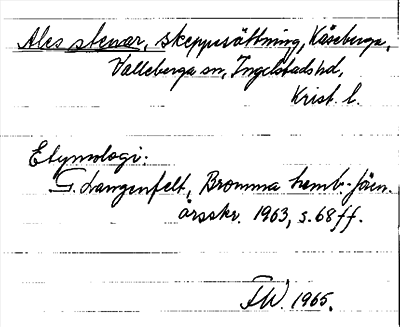 Ales stenar, skeppssättning, Kåseberga,
Valleberga sn, Ingelstads hd,
Krist. l.
Etymologi:
G. Langenfelt, Bromma hemb.-fören.
årsskr. 1963, s. 68 ff.
FW. 1965.